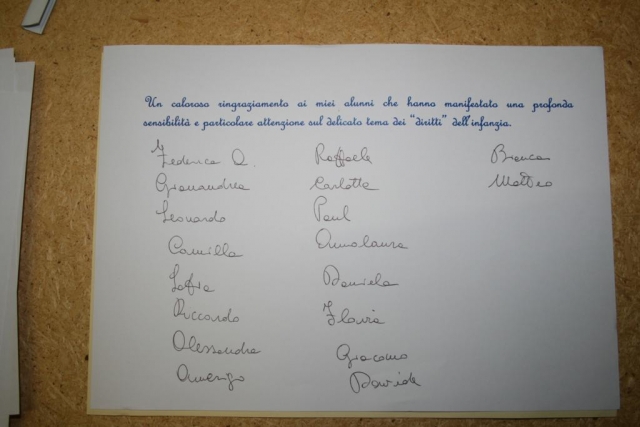 Un caloroso ringraziamento ai miei alunni che hanno manifestato una profonda
sensibilità e particolare attenzione sul delicato tema dei "diritti" dell'infanzia.
Federica Q.
Gianandrea
Leonardo
Camilla
Sofia
Riccardo
Alessandra
Amerigo
Raffaele
Carlotta
Paul
Annalaura
Daniela
Flavia
Giacomo
Davide
Bianca
Matteo